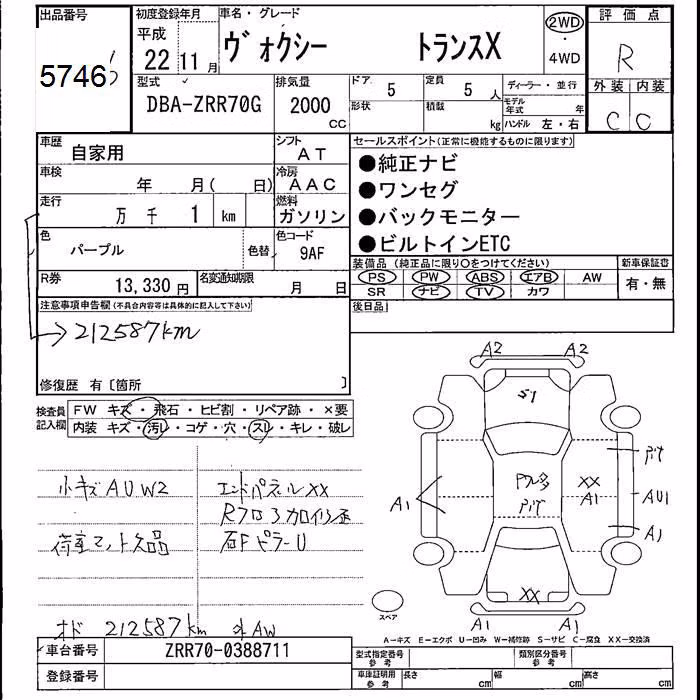 出品番号
5746
初度登録年月
平成
22 11 月
車名・グレード
ヴォクシー トランスX
2WD
・
4WD
評価点
R
外装 内装
C C
型式
DBA-ZRR70G
排気量
2000
CC
ドア 5
形状
定員 5 人
積載 kg
ディーラー・並行
モデル年式 年
ハンドル 左・右
車歴
自家用
シフト
AT
車検
年 月( 日)
冷房
AAC
走行
万 千 1 km
燃料
ガソリン
色
パープル
色替
色コード
9AF
R券
13,330 円
名変通知期限
月 日
セールスポイント(正常に機能するものに限ります)
●純正ナビ
●ワンセグ
●バックモニター
●ビルトインETC
装備品 (純正品に限り○をつけてください)
PS PW ABS エアB AW
SR ナビ TV カワ
新車保証書
有・無
後日品
注意事項申告欄(不具合内容等は具体的に記入して下さい)
212587km
修復歴 有〔箇所 〕
検査員記入欄
FW キズ・飛石・ヒビ割・リペア跡・×要
内装 キズ・汚レ・コゲ・穴・スレ・キレ・破レ
小キズ AUW2
エンドパネルXX
荷室マット欠品
右FピラーU
オド 212587km 外AW
A2 A2
S1
XX
A1
A1
AU1
A1
XX
A1 A1
スペア
A-キズ E-エクボ U-凹み W-補修跡 S-サビ C-腐食 XX-交換済
車台番号
ZRR70-0388711
登録番号
型式指定番号
参考
類別区分番号
参考
車庫証明用
参考
長さ cm
幅 cm
高さ cm